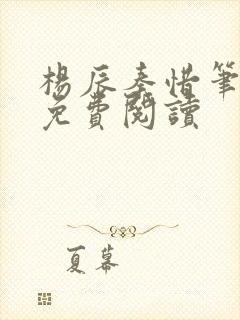 楊辰秦惜筆
免費閱讀
夏幕